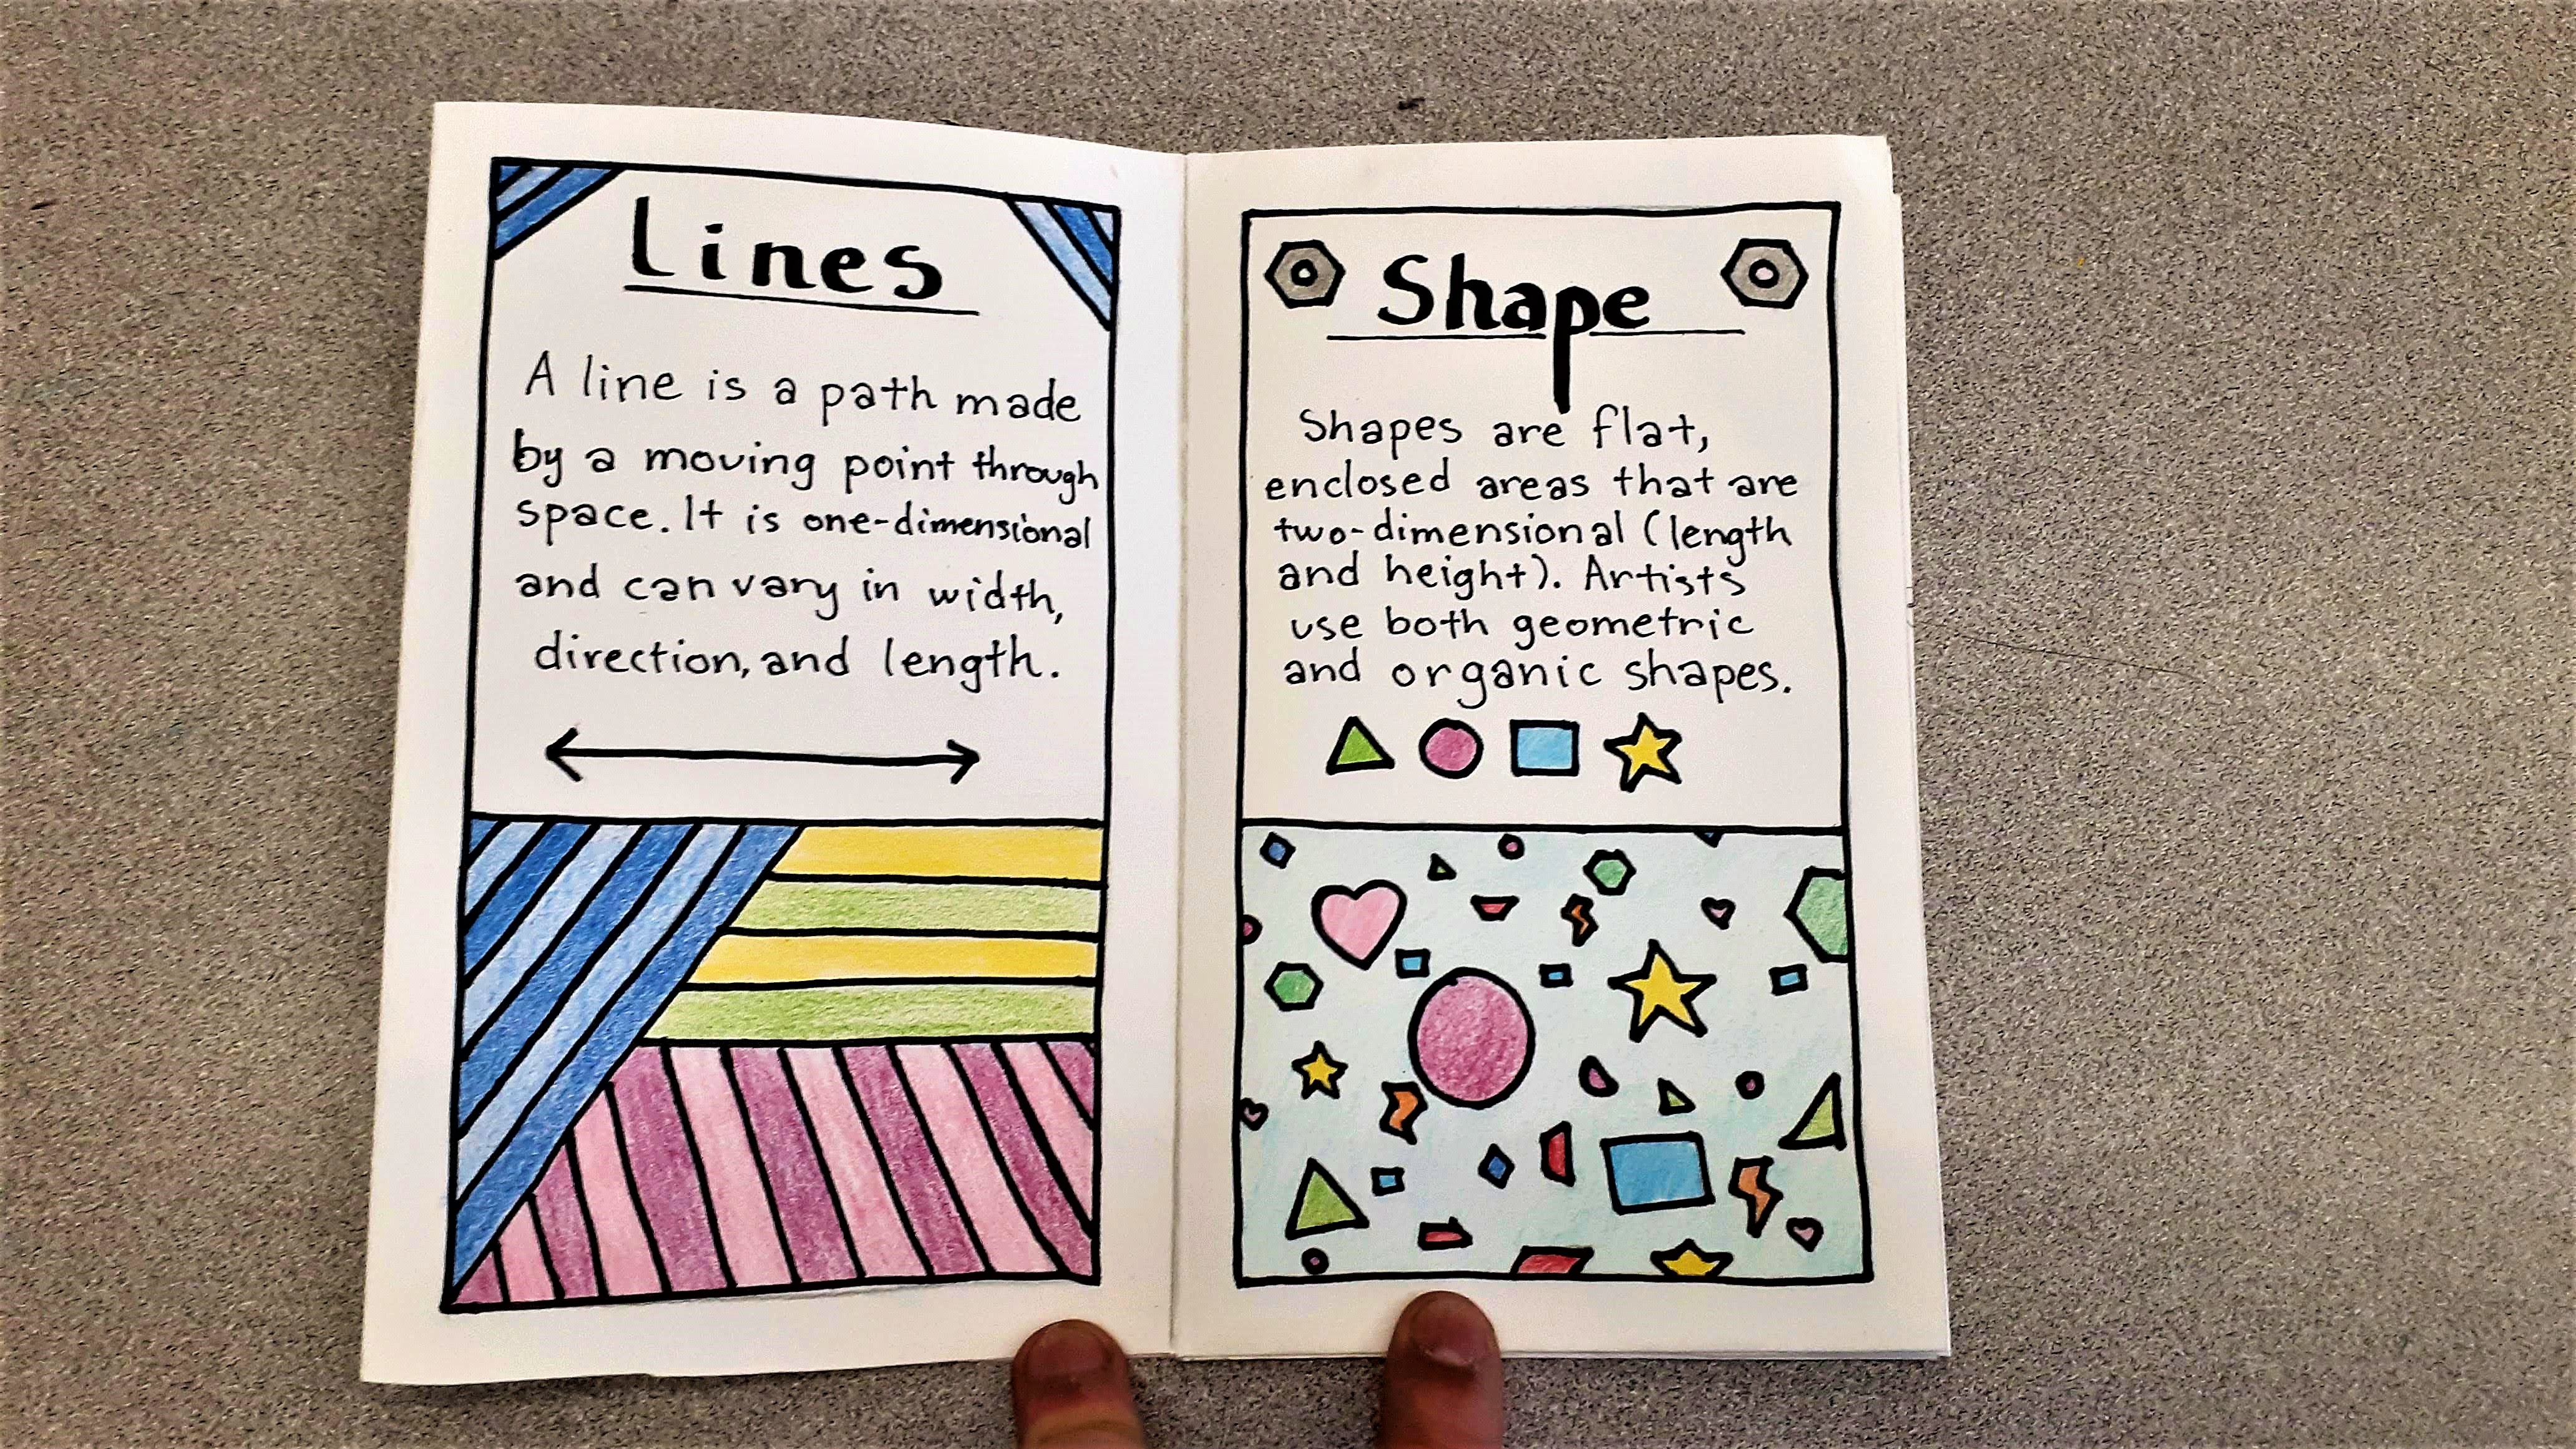 Lines
A line is a path made
by a moving point through
space. It is one-dimensional
and can vary in width,
direction, and length.
Shape
Shapes are flat,
enclosed areas that are
two-dimensional (length
and height). Artists
use both geometric
and organic shapes.